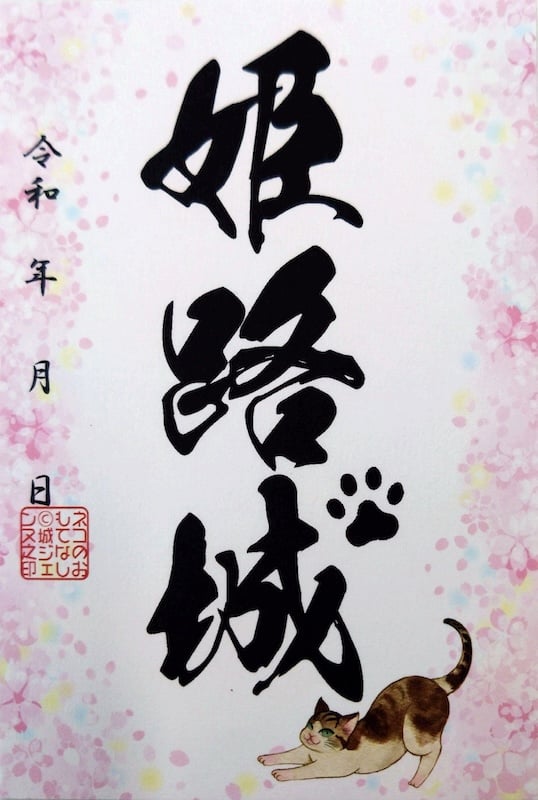 姫路城
令和 年 月 日
ネコのお
もてなし
©城ジェ
ンヌ之印